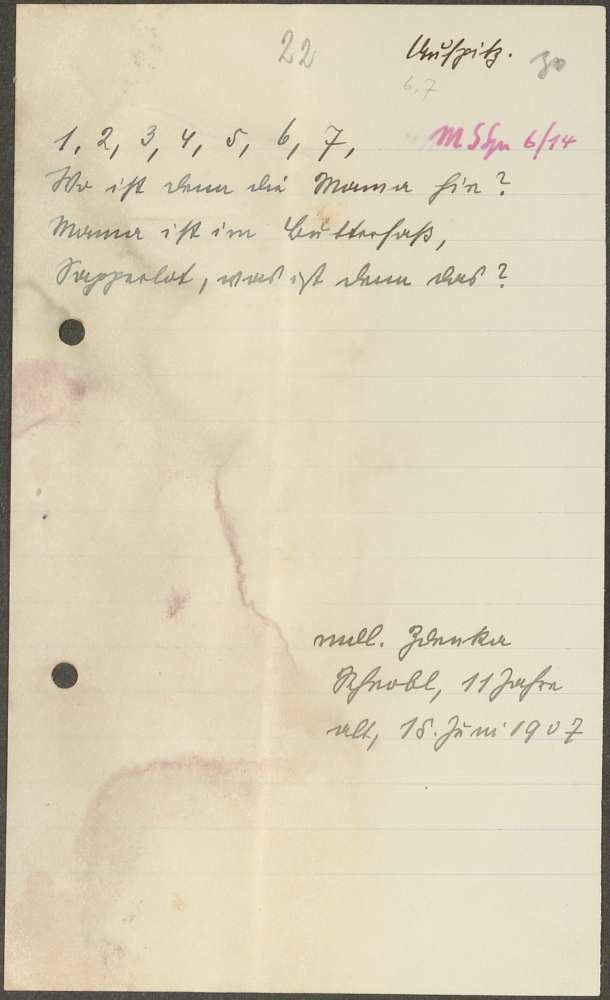 22
Auspitz.
30
6,7
1, 2, 3, 4, 5, 6, 7,
6/14
Wo ist denn die Mama hin?
Mama ist im Butterfaß,
Sapperlot, was ist denn das?
Zdenka
11 Jahre
alt, 15. Juni 1907